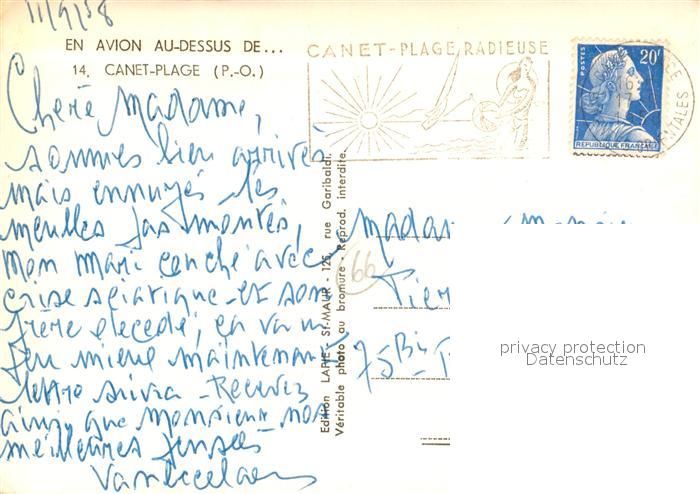 11/9/58
EN AVION AU-DESSUS DE...
14. CANET-PLAGE (P.-O.)
CANET-PLAGE RADIEUSE
POSTES 20F
REPUBLIQUE FRANÇAISE
Chère Madame,
sommes bien arrivés
mais ennuyés les
meubles pas montés,
mon mari couché avec
crise sciatique et son
frère décédé, ça va un
peu mieux maintenant
lettre suivra - Recevez
ainsi que Monsieur nos
meilleures pensées
Edition LARREY St-MAUR - 125, rue Garibaldi.
Véritable photo au bromure Reprod. interdite.
66
Madame
75 Bis
privacy protection
Datenschutz